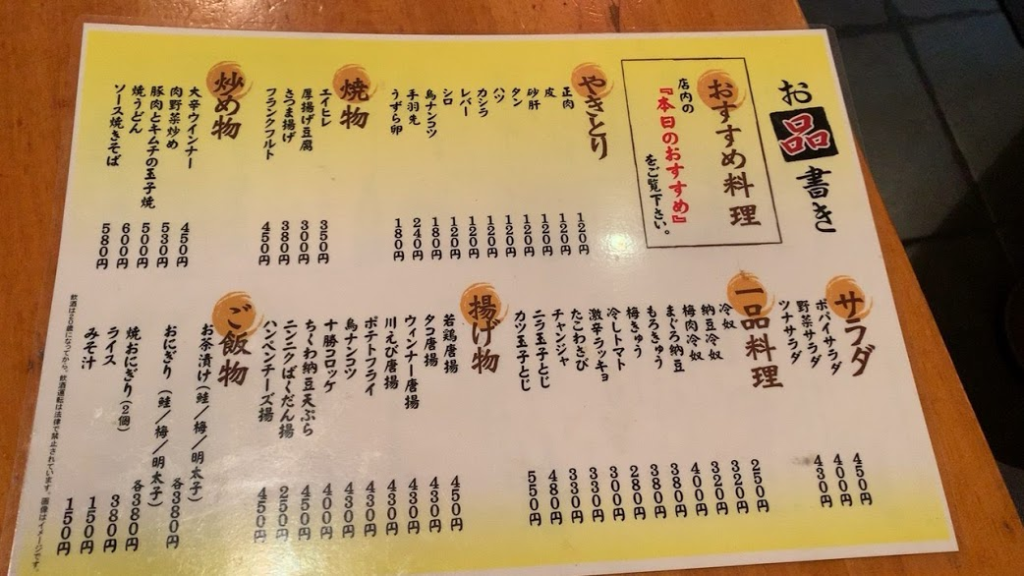 お品書き
おすすめ料理
店内の
『本日のおすすめ』
をご覧下さい。
やきとり
正肉 120円
皮 120円
砂肝 120円
タン 120円
ハツ 120円
カシラ 120円
レバー 120円
シロ 120円
鳥ナンコツ 180円
手羽先 240円
うずら卵 180円
焼物
エイヒレ 350円
厚揚げ豆腐 300円
さつま揚げ 380円
フランクフルト 450円
炒め物
大辛ウインナー 450円
肉野菜炒め 530円
豚肉とキムチの玉子焼 500円
焼うどん 600円
ソース焼きそば 580円
サラダ
ポパイサラダ 450円
野菜サラダ 400円
ツナサラダ 430円
一品料理
冷奴 250円
納豆冷奴 320円
梅肉冷奴 320円
まぐろ納豆 400円
もろきゅう 380円
梅きゅう 380円
冷しトマト 280円
激辛ラッキョ 300円
たこわさび 330円
チャンジャ 330円
ニラ玉子とじ 480円
カツ玉子とじ 550円
揚げ物
若鶏唐揚 450円
タコ唐揚 430円
ウィンナー唐揚 430円
川えび唐揚 430円
ポテトフライ 430円
鳥ナンコツ 430円
十勝コロッケ 400円
ちくわ納豆天ぷら 450円
ニンニクばくだん揚 250円
ハンペンチーズ揚 450円
ご飯物
お茶漬け(鮭/梅/明太子) 各380円
おにぎり(鮭/梅/明太子) 各380円
焼おにぎり(2個) 380円
ライス 150円
みそ汁 150円
飲酒は20歳になってから。飲酒運転は法律で禁止されています。画像はイメージです。